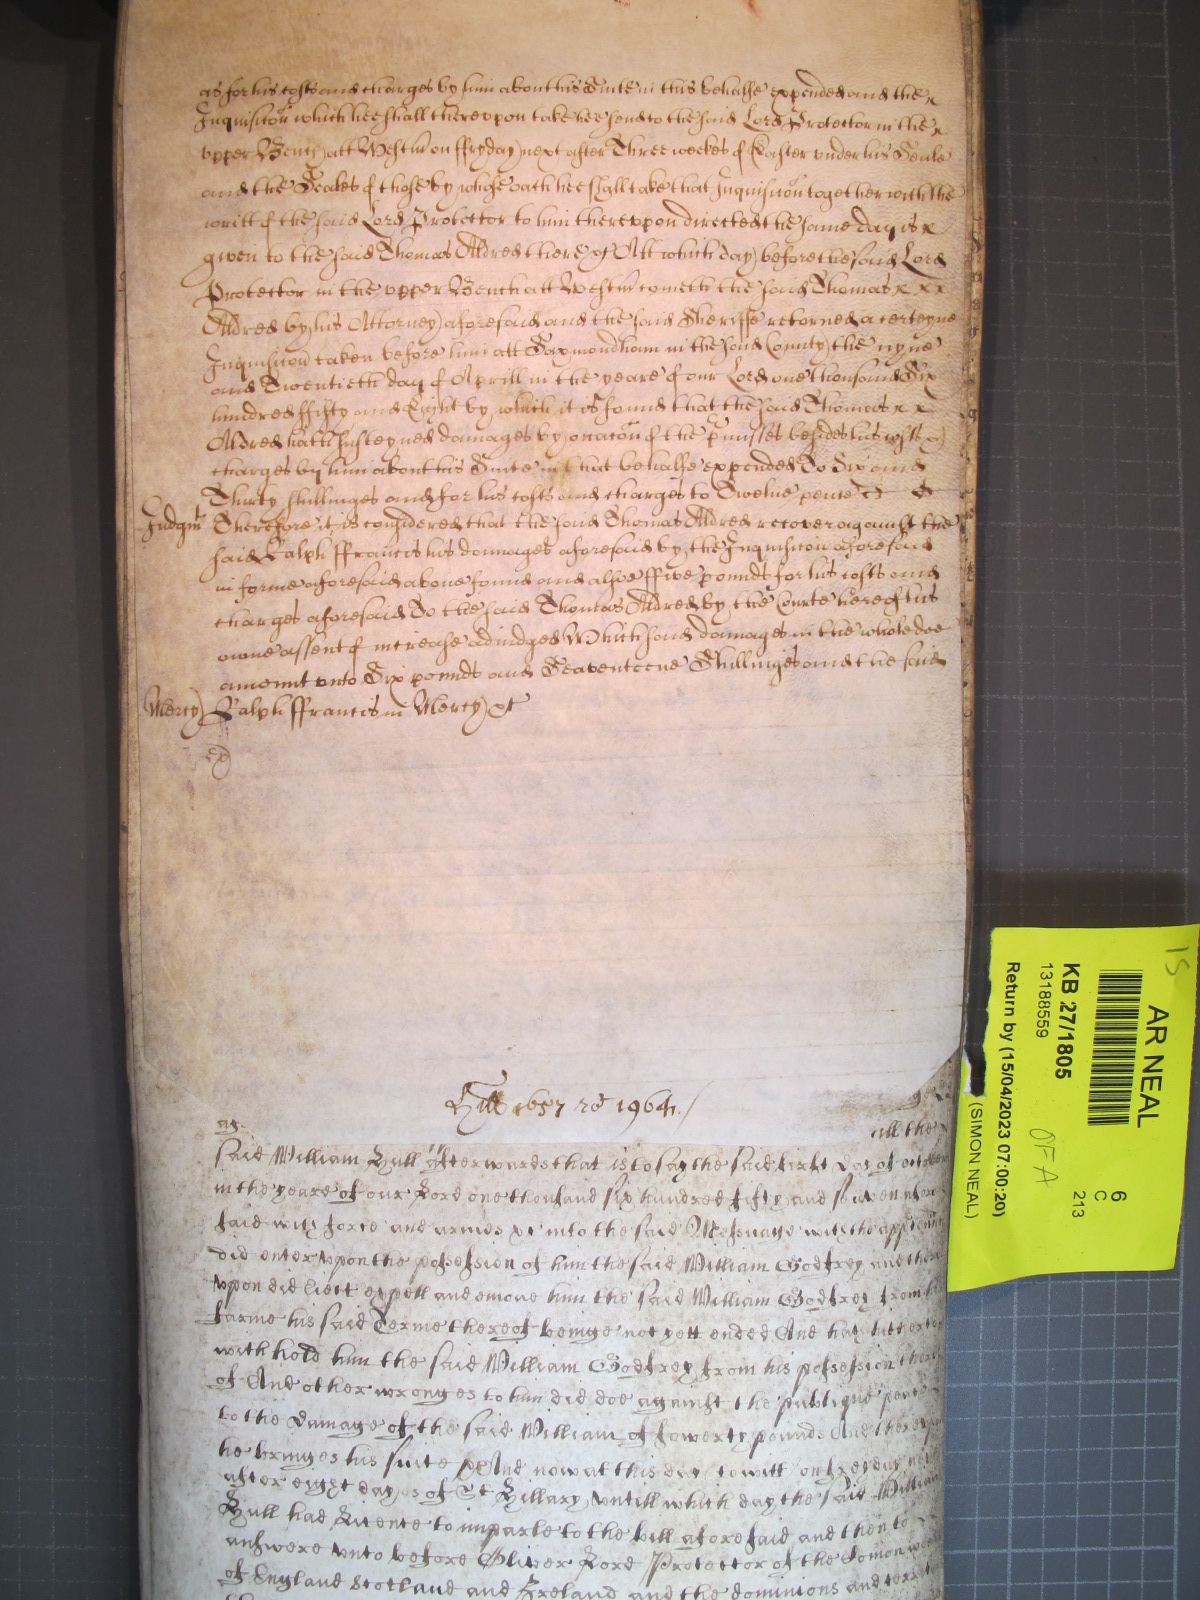 as for his costs and charges by him about his Suite in this behalfe expended and the
Inquisicon which hee shall thereupon take hee send to the said Lord Protector in the
upper Bench att Westm on ffryday next after Three weekes of Easter under his Seale
and the Seales of those by whose oath hee shall take that Inquisicon together with the
writt of the said Lord Protector to him thereupon directed the same day is
given to the said Thomas Aldred there &c Att which day before the said Lord
Protector in the upper Bench att Westm cometh the said Thomas x x x
Aldred by his Attorney aforesaid and the said Sheriffe retorned a certeyne
Inquisicon taken before him att Saxmondham in the said County the nyne
and Twentieth day of Aprill in the yeare of our Lord one thousand Six
hundred ffifty and Eight by which it is found that the said Thomas x x
Aldred hath susteyned damages by occacon of the pmisses besides his costs &
charges by him about his Suite in that behalfe expended To Six and
Thirty shillinges and for his costs and charges to Twelve pence
Judgmt Therefore it is considered that the said Thomas Aldred recover against the
said Ralph ffrancis his damages aforesaid by the Inquisicon aforesaid
in forme aforesaid above found and alsoe ffive pounds for his costs and
charges aforesaid To the said Thomas Aldred by the Courte here of his
owne assent of increase adiudged Which said damages in the whole doe
amount unto Six pounds and Seaventeene Shillinges and the said
Mercy Ralph ffrancis in Mercy &c
Hill 1657 ro 1964.
all the
said William Hull Afterwards that is to say the said first day of october
in the yeare of our Lord one thousand six hundred fifty and seaven afore
said with force and armes &c into the said Messuage with the appten
did enter upon the possession of him the said William Godfrey and there
upon did eiect expell and emove him the said William Godfrey from his
farme his said Terme thereof beinge not yett ended And hath hitherto
with hold him the said William Godfrey from his possession there
of And other wronges to him did doe against the publique peace
to the damage of the said William of fowerty pounds And thereupon
he bringes his suite &c And now at this day to witt on fryday next
after eight dayes of St Hillary untill which day the said William
Hull had Licence to imparle to the bill aforesaid and then to
answere unto before Oliver Lord Protector of the Comon
of England Scotland and Ireland and the dominions and
AR NEAL
KB 27/1805
13188559
Return by (15/04/2023 07:00:20)
(SIMON NEAL)
6
C
213
OFA
15